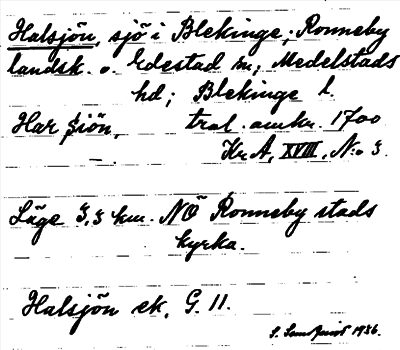 Halsjön, sjö i Blekinge; Ronneby
landsk. o. Edestad sn; Medelstads
hd; Blekinge l.
Har Siön, tral. anm. 1700
Kr. A, XVIII, N:o 3.
Läge 3,3 km. NÖ Ronneby stads
kyrka.
Halsjön ek. G. 11.
S. 1936.